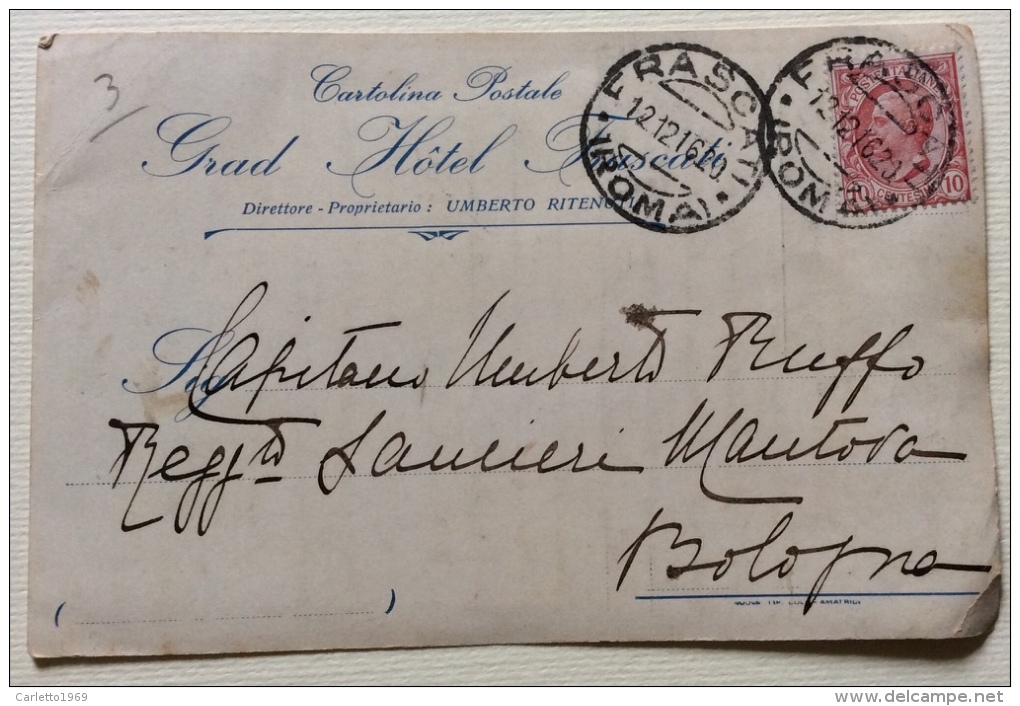 3
Cartolina Postale
Grad Hôtel Frascati
Direttore - Proprietario : UMBERTO
FRASCATI
12.12.16.20
(ROMA)
FRASCATI
12.12.16.20
(ROMA)
POSTE ITALIANE
10 CENTESIMI 10
Sig
Capitano Umberto Ruffo
Reggto Lancieri Mantova
Bologna
( )
Carletto1969
delcampe.net